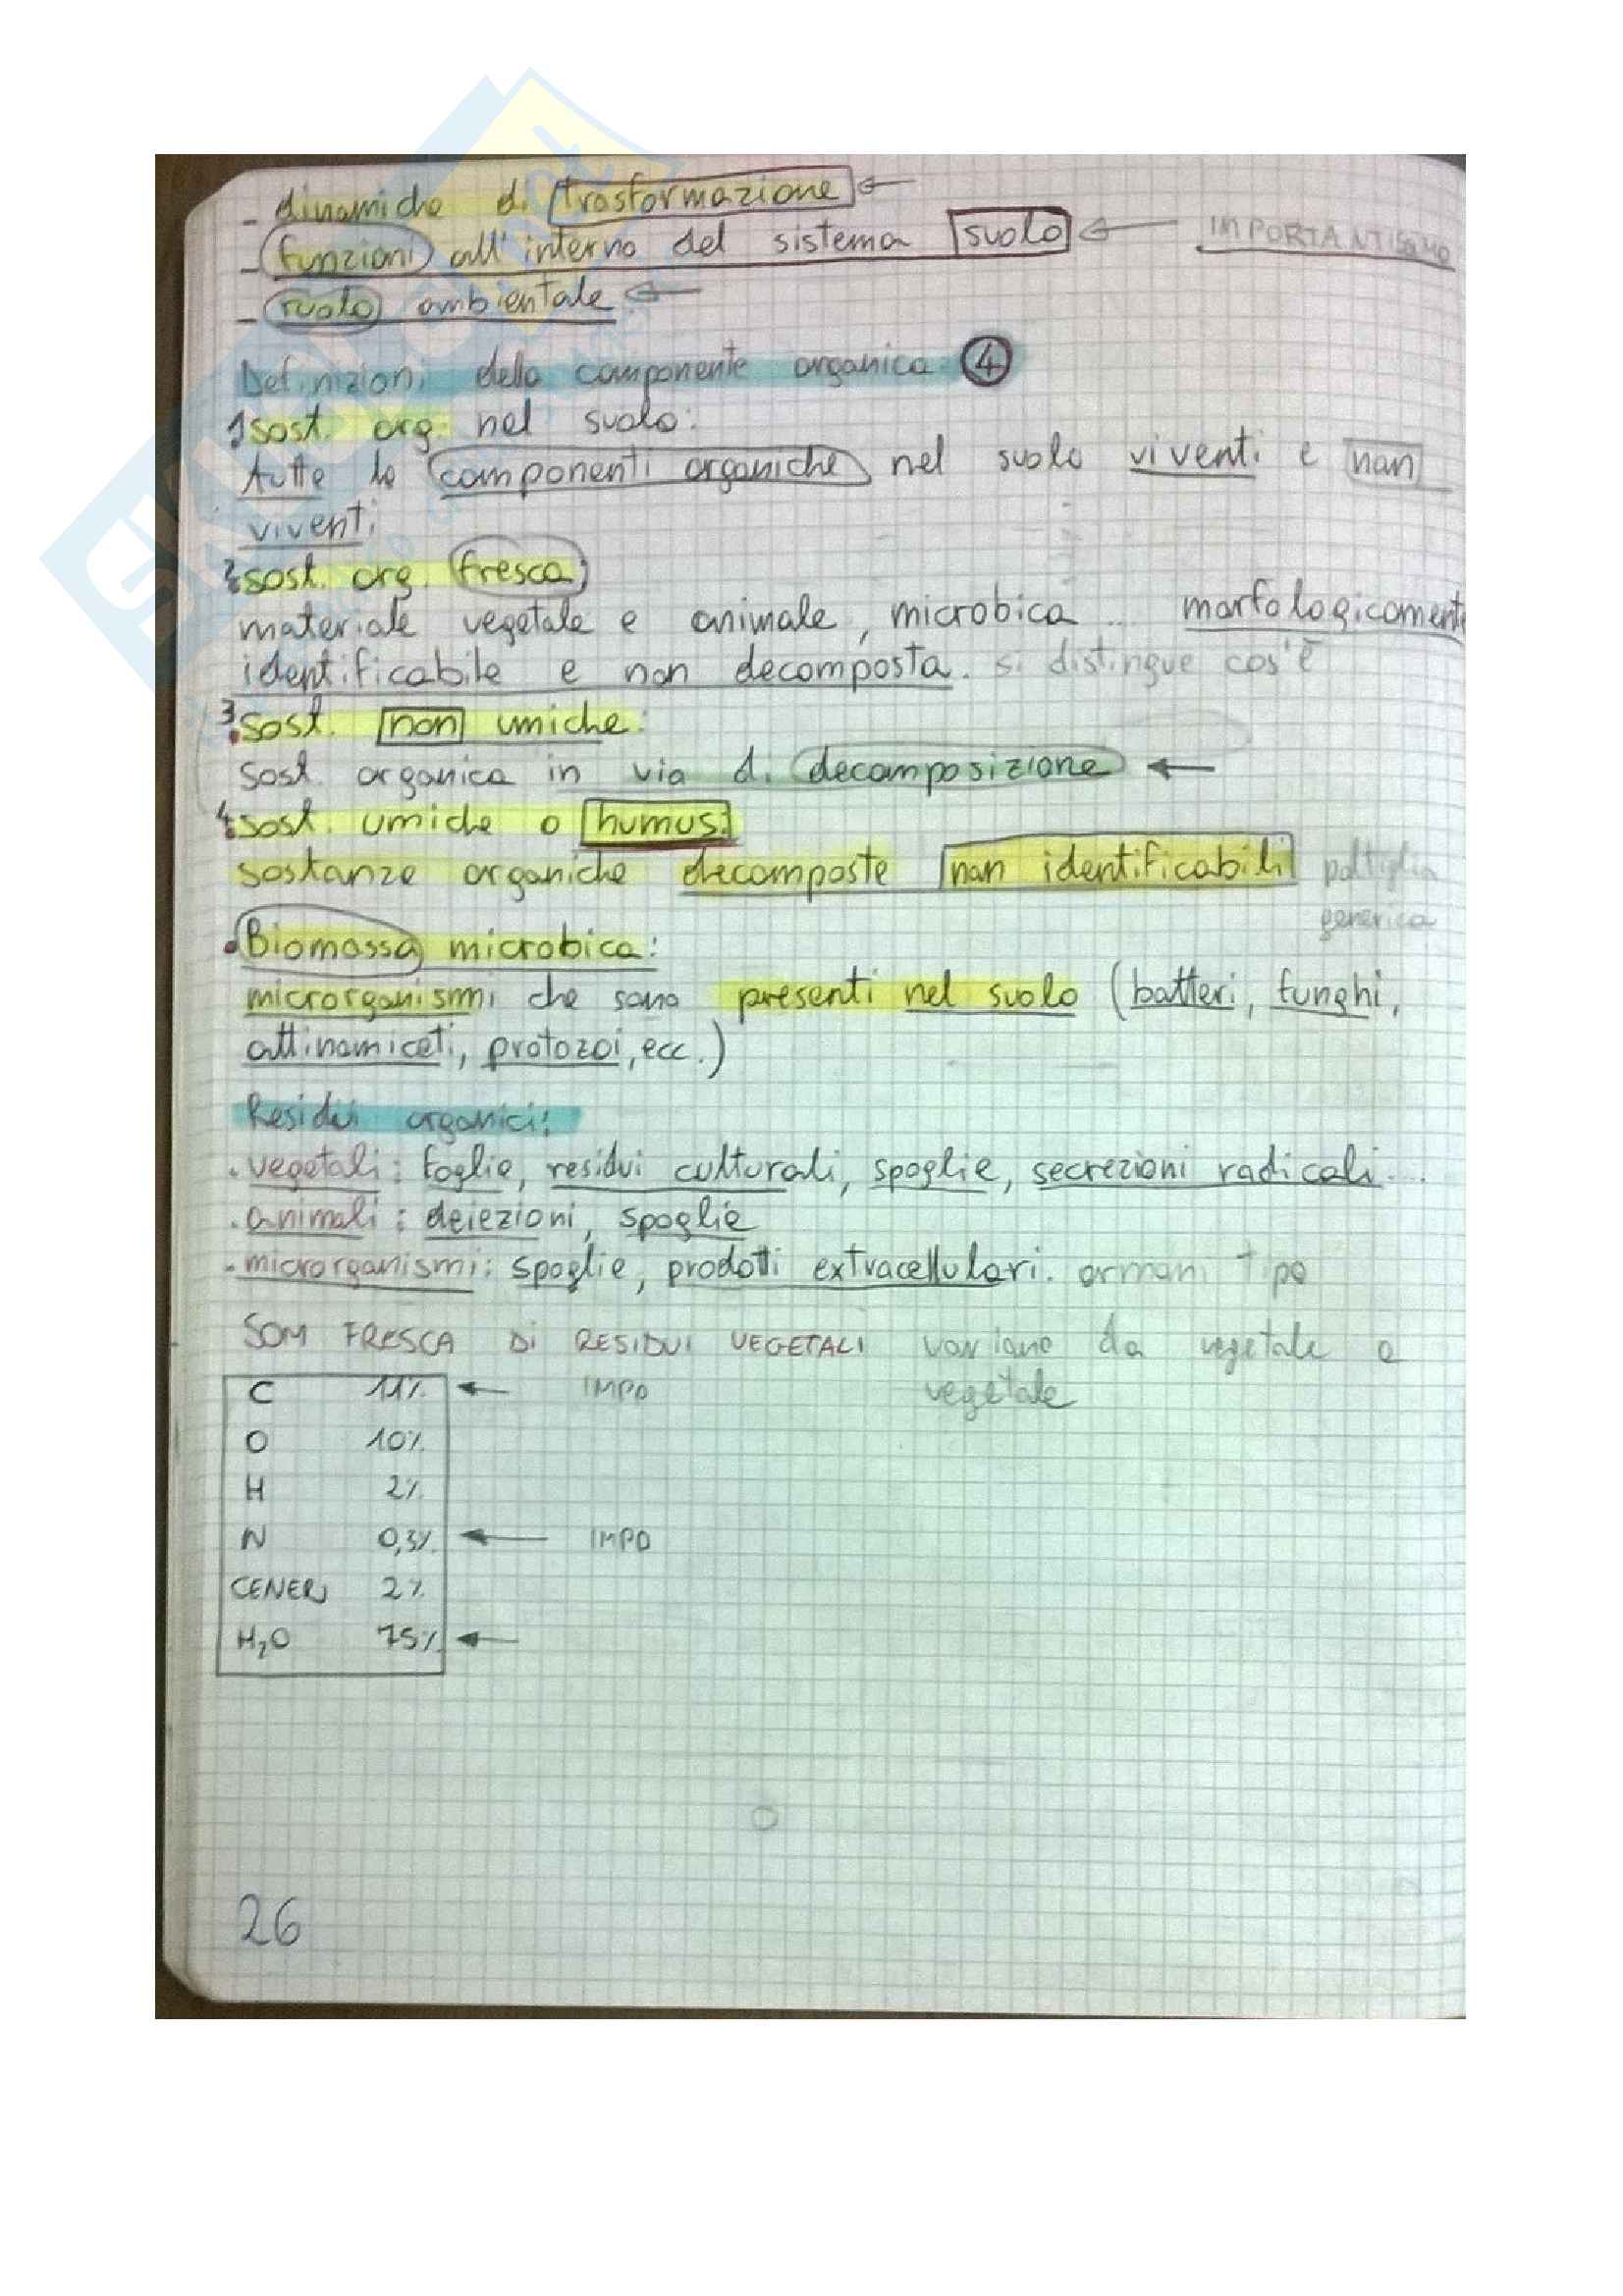 - dinamiche di trasformazione ←
- funzioni all'interno del sistema suolo ← IMPORTANTISSIMO
- ruolo ambientale ←
Definizioni della componente organica 4
1 sost. org. nel suolo:
tutte le componenti organiche nel suolo viventi e non
viventi
2. sost. org. fresca
materiale vegetale e animale, microbica ... morfologicamente
identificabile e non decomposta. si distingue cos'è
3. sost. non umiche:
sost. organica in via di decomposizione ←
4. sost. umiche o humus:
sostanze organiche decomposte non identificabili poltiglia
generica
• Biomassa microbica:
microrganismi che sono presenti nel suolo (batteri, funghi,
attinomiceti, protozoi, ecc.)
Residui organici:
. vegetali: foglie, residui culturali, spoglie, secrezioni radicali....
. animali: deiezioni, spoglie
. microrganismi: spoglie, prodotti extracellulari. ormoni tipo
SOM FRESCA DI RESIDUI VEGETALI variano da vegetale a
vegetale
C 11% ← IMPO
O 10%
H 2%
N 0,3% ← IMPO
CENERI 2%
H₂O 75% ←
26